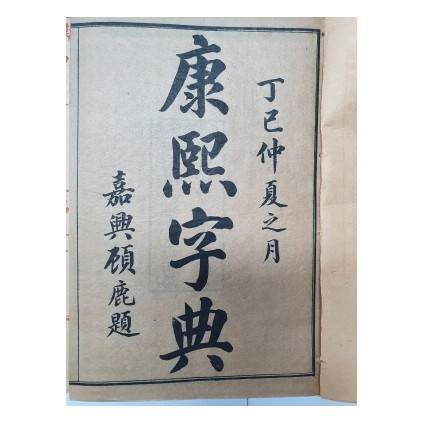 丁巳仲夏之月
康熙字典
嘉興頋鹿題